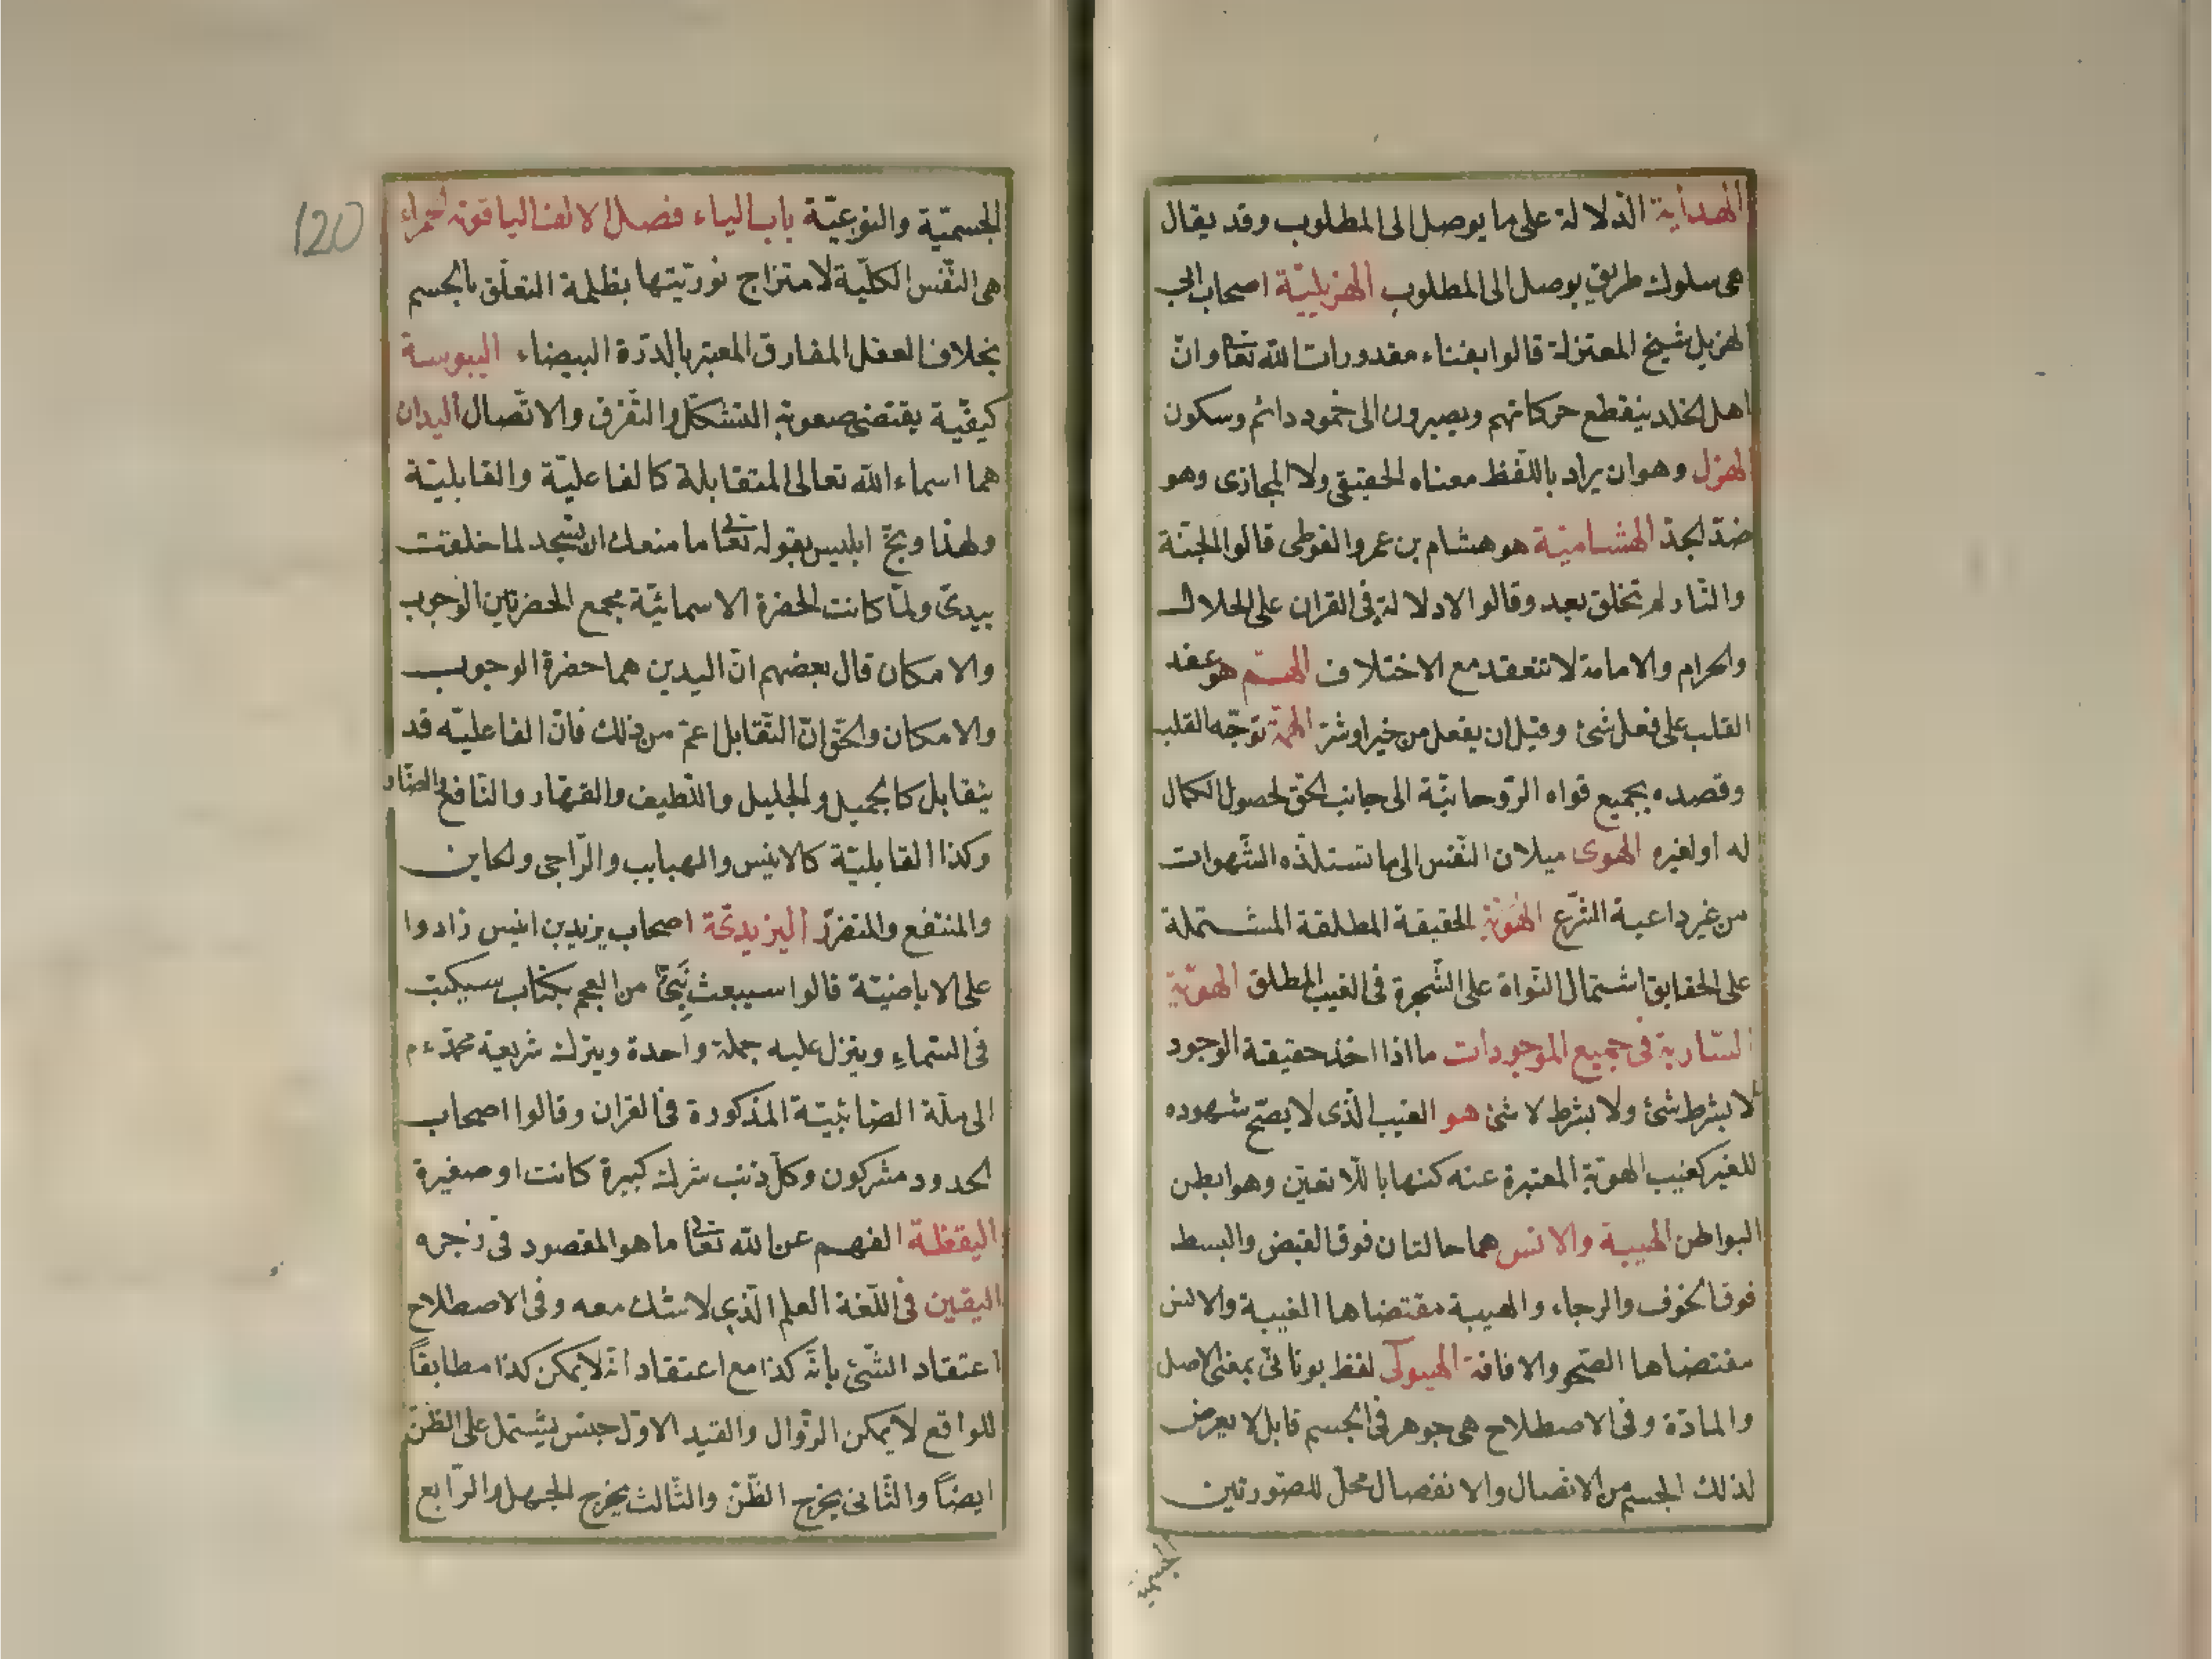 الهداية الدلالة على ما يوصل الى المطلوب وقد يقال
هى سلوك طريق يوصل الى المطلوب الهزيليّة اصحاب ابى
الهزيل شيخ المعتزلة قالوا بفناء مقدورات الله تعالى وانّ
اهل الخلد ينقطع حركاتهم ويصيرون الى خمود دائم وسكون
الهزل وهو ان يراد باللّفظ معناه الحقيقى ولا المجازى وهو
ضدّ الجدّ الهشاميّة هو هشام بن عمرو الفوطى قالوا الجنّة
والنّار لم تخلق بعد وقالوا لا دلالة فى القران على الحلال
والحرام والامامة لا تنعقد مع الاختلاف الهمّ هو عقد
القلب على فعل شئ وقيل ان يفعل من خير او شرّ الهمّة توجّه القلب
وقصده بجميع قواه الرّوحانيّة الى جانب الحقّ لحصول الكمال
له او لغيره الهوى ميلان النّفس الى ما تستلذّه الشّهوات
من غير داعية الشّرع الهويّة الحقيقة المطلقة المشتملة
على الحقايق اشتمال النّواة على الشّجرة فى الغيب المطلق الهويّة
السّارية فى جميع الموجودات ما اذا اخذ حقيقة الوجود
لا بشرط شئ ولا بشرط لا شئ هو الغيب الّذى لا يصحّ شهوده
للغير كغيب الهويّة المعتبرة عنه كنهها باللّا تعيّن وهو ابطن
البواطن الهيبة والانس هما حالتان فوق القبض والبسط
فوق الخوف والرجاء والهيبة مقتضاها الغيبة والانس
مقتضاها الصّحو والافاقة الهيولى لفظ يونانىّ بمعنى الاصل
والمادّة وفى الاصطلاح هى جوهر فى الجسم قابل لا يعرض
لذلك الجسم من الاتّصال والانفصال محلّ للصّورتين
الجسميّة
120
الجسميّة والنوعيّة باب الياء فصل الالف الياقوتة الحمراء
هى النّفس الكلّيّة لامتزاج نوريّتها بظلمة التعلّق بالجسم
بخلاف العقل المفارق المعبّر بالدرّة البيضاء اليبوسة
كيفيّة يقتضى صعوبة التشكّل والتّفرّق والاتّصال اليدان
هما اسماء الله تعالى المتقابلة كالفاعليّة والقابليّة
ولهذا وبّخ ابليس بقوله تعالى ما منعك ان تسجد لما خلقت
بيدىّ ولمّا كانت الحضرة الاسمائيّة مجمع الحضرتين الوجوب
والامكان قال بعضهم انّ اليدين هما حضرة الوجوب
والامكان والحقّ انّ التّقابل اعمّ من ذلك فانّ الفاعليّه قد
يتقابل كالجميل والجليل واللّطيف والقهّار والنّافع والضّار
وكذا القابليّة كالانيس والهايب والرّاجى والخاين
والمنتفع والمتضرّر اليزيديّة اصحاب يزيد بن انيس زادوا
على الاباضيّة قالوا سيبعث نبىّ من العجم بكتاب سيكتب
فى السّماء وينزل عليه جملة واحدة ويترك شريعة محمّد ءم
الى ملّة الصّابئيّة المذكورة فى القران وقالوا اصحاب
الحدود مشركون وكلّ ذنب شرك كبيرة كانت او صغيرة
اليقظة الفهم عن الله تعالى ما هو المقصود فى زجره
اليقين فى اللّغة العلم الّذى لا شك معه وفى الاصطلاح
اعتقاد الشّئ بانّه كذا مع اعتقاد انّه لا يمكن كذا مطابقاً
للواقع لا يمكن الزّوال والقيد الاوّل جنس يشتمل على الظّنّ
ايضاً والثّانى يخرج الظّنّ والثّالث يخرج الجهل والرّابع